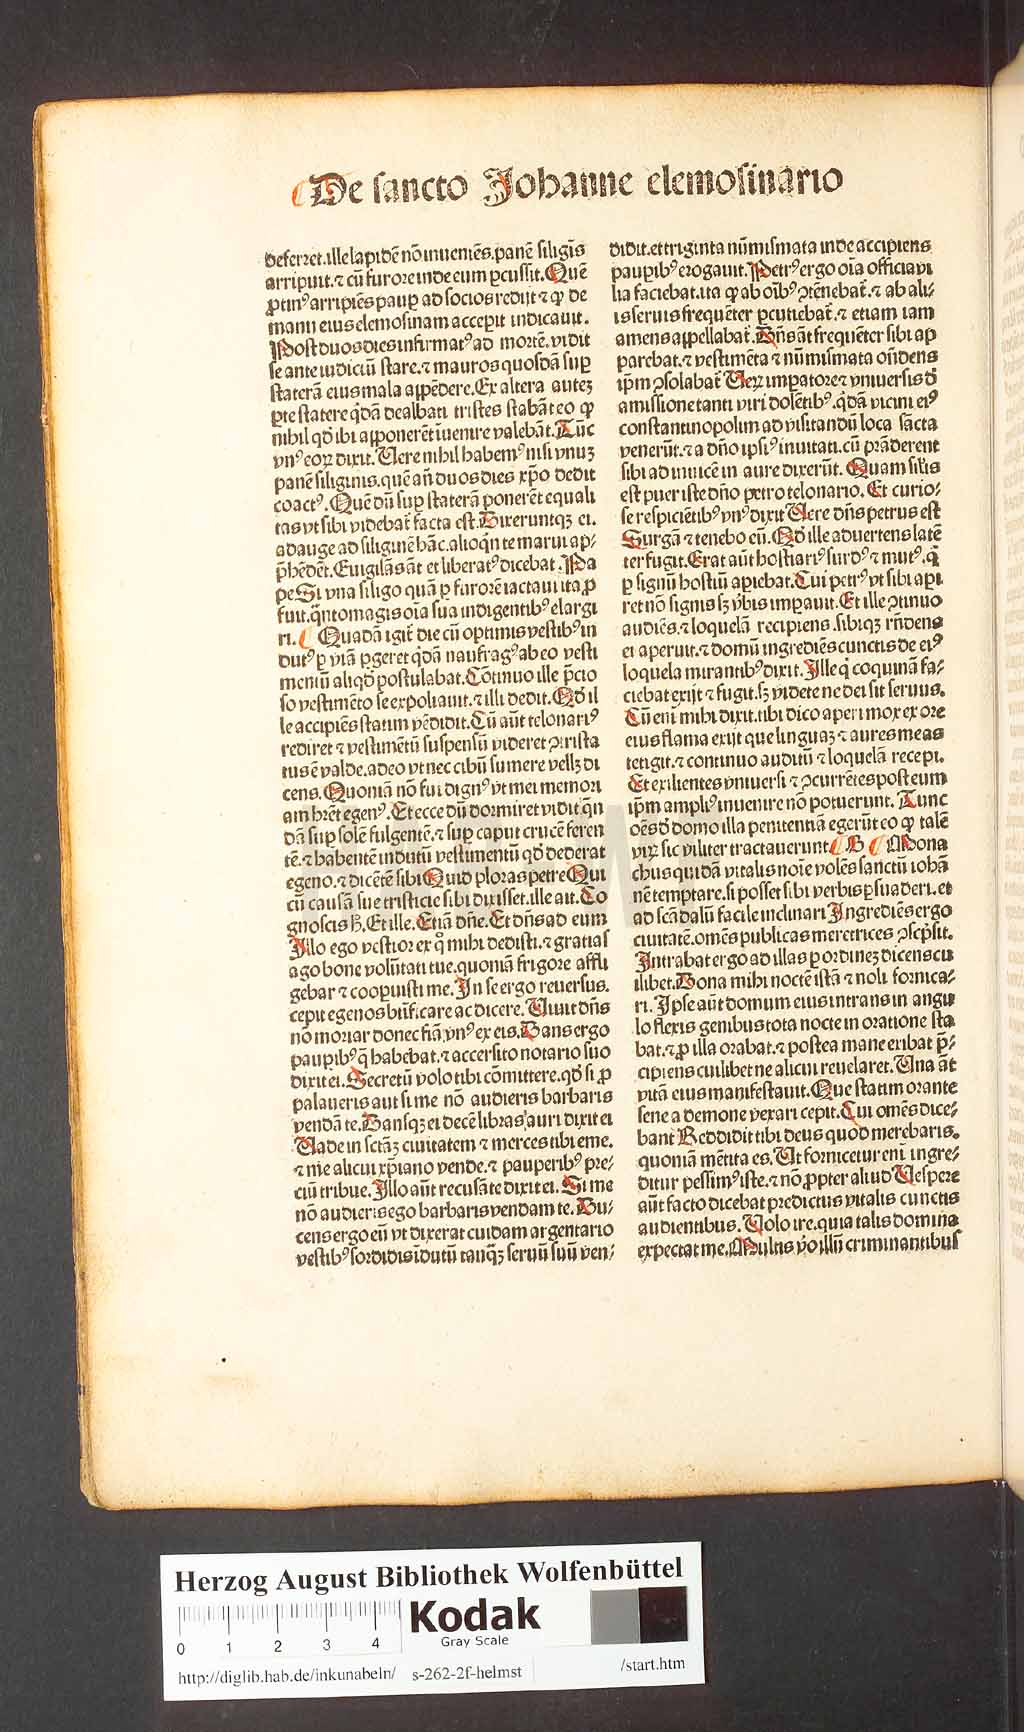 De sancto Johanne elemosinario
deferret. ille lapidē nō inueniēs. panē siligīs
arripuit. ⁊ cū furore inde eum ꝑcussit. Quē
ꝓtinꝰ arripiēs paup̄ ad socios redijt ⁊ ꝙ de
manu eius elemosinam acceꝑit indicauit.
Post duos dies infirmatꝰ ad mortē. vidit
se ante iudiciū stare. ⁊ mauros quosdā suꝑ
staterā eius mala appēdere. Ex altera autez
ꝑte statere q̄dā dealbati tristes stabāt eo ꝙ
nihil qd̓ ibi apponerēt īuenire valebāt. Tūc
vnꝰ eoꝝ dixit. Uere nihil habemꝰ nisi vnuz
panē siliginis. quē an̄ duos dies xp̄o dedit
coactꝰ. Quē dū suꝑ staterā ponerēt equali
tas vt sibi videbat̄ facta est. Dixeruntqꝫ ei.
adauge ad siliginē hāc. alioqn̄ te mauri ap-
p̄hēdēt. Euigilās āt et liberatꝰ dicebat. Pa
pe Si vna siligo quā ꝑ furorē iactaui ita ꝓ
fuit. q̄ntomagis oīa sua indigentibꝰ elargi
ri. Quadā igit̄ die cū optimis vestibꝰ in
dutꝰ ꝑ viā ꝑgeret q̄dā naufragꝰ ab eo vesti
mentū aliqd̓ postulabat. Cōtinuo ille p̄cio
so vestimēto se expoliauit. ⁊ illi dedit. Qd̓ il
le accipiēs statim vēdidit. Cū aūt telonariꝰ
rediret ⁊ vestimētū suspensū videret ↄtrista
tus ē valde. adeo vt nec cibū sumere vellꝫ di
cens. Quoniā nō fui dignꝰ vt mei memori
am hr̄et egenꝰ. Et ecce dū dormiret vidit q̄n
dā suꝑ solē fulgentē. ⁊ suꝑ caput crucē feren
tē. ⁊ habentē indutū vestimentū qd̓ dederat
egeno. ⁊ dicētē sibi Quid ploras petre Qui
cū causā sue tristicie sibi dixisset. ille ait. Co
gnoscis h̄. Et ille. Etiā dn̄e. Et dn̄s ad eum
Illo ego vestior ex q̊ mihi dedisti. ⁊ gratias
ago bone volūtati tue. quoniā frigore affli
gebar ⁊ cooꝑuisti me. In se ergo reuersus.
cepit egenos bn̄ficare ac dicere. Uiuit dn̄s
nō moriar donec fiā vnꝰ ex eis. Dans ergo
pauꝑibꝰ q̄ habebat. ⁊ accersito notario suo
dixit ei. Secretū volo tibi cōmittere. qd̓ si ꝓ
palaueris aut si me nō audieris barbaris
vendā te. Dansqꝫ ei decē libras auri dixit ei
Uade in sctāꝫ ciuitatem ⁊ merces tibi eme.
⁊ me alicui xp̄iano vende. ⁊ pauperibꝰ pre-
ciū tribue. Illo aūt recusāte dixit ei. Si me
nō audieris ego barbaris vendam te. Du-
cens ergo eū vt dixerat cuidam argentario
vestibꝰ sordidis īdutū tanqꝫ seruū suū ven-
didit. et triginta nūmismata inde accipiens
pauꝑibꝰ erogauit. Petrꝰ ergo oīa officia vi
lia faciebat. ita ꝙ ab oībꝰ ↄtēnebat̄. ⁊ ab ali-
is seruis frequēter ꝑcutiebat̄. ⁊ etiam iam
amens appellabat̄. Dn̄s āt frequēter sibi ap
parebat. ⁊ vestimēta ⁊ nūmismata on̄dens
ip̄m ↄsolabat̄ Ueꝝ imꝑatore ⁊ vniuersis d̓
amissione tanti viri dolētibꝰ. q̄dā vicini eiꝰ
constantinopolim ad visitandū loca sācta
venerūt. ⁊ a dn̄o ipsiꝰ inuitati. cū prāderent
sibi adinuicē in aure dixerūt. Quam sil̓is
est puer iste dn̄o petro telonario. Et curio-
se respiciētibꝰ vnꝰ dixit Uere dn̄s petrus est
Surgā ⁊ tenebo eū. Qd̓ ille aduertens latē
ter fugit. Erat aūt hostiariꝰ surdꝰ ⁊ mutꝰ. q̄
ꝑ signū hostiū aꝑiebat. Cui petrꝰ vt sibi aꝑi
ret nō signis sꝫ v̓bis imꝑauit. Et ille ↄtinuo
audiēs. ⁊ loquelā recipiens. sibiqꝫ rn̄dens
ei aperuit. ⁊ domū ingrediēs cunctis de eiꝰ
loquela mirantibꝰ dixit. Ille q̄ coquinā fa-
ciebat exijt ⁊ fugit. sꝫ videte ne dei sit seruus.
Cū eni mihi dixit. tibi dico aperi mox ex ore
eius flama exijt que linguaꝫ ⁊ aures meas
tetigit. ⁊ continuo auditū ⁊ loquelā recepi.
Et exilientes vniuersi ⁊ ↄcurrētes post eum
ip̄m ampliꝰ inuenire nō potuerunt. Tunc
oēs d̓ domo illa penitentiā egerūt eo ꝙ talē
viꝝ sic viliter tractauerunt B Mona
chus quidā vitalis noīe volēs sanctū iohā
nē temptare. si posset sibi verbis ꝑsuaderi. et
ad scādalū facile inclinari Ingrediēs ergo
ciuitatē. omēs publicas meretrices ↄscp̄sit.
Intrabat ergo ad illas ꝑ ordinez dicens cu
ilibet. Dona mihi noctē istā ⁊ noli fornica-
ri. Ipse aūt domum eius intrans in angu
lo flexis genibus tota nocte in oratione sta
bat. ⁊ ꝓ illa orabat. ⁊ postea mane exibat p̄-
cipiens cuilibet ne alicui reuelaret. Una āt
vitā eius manifestauit. Que statim orante
sene a demone vexari cepit. Cui omēs dice-
bant Reddidit tibi deus quod merebaris.
quoniā mētita es. Ut fornicetur eni ingre-
ditur pessimꝰ iste. ⁊ nō ꝓpter aliud Uespere
aūt facto dicebat predictus vitalis cunctis
audientibus. Uolo ire. quia talis domina
expectat me. Multis v̓o illū criminantibus
Herzog August Bibliothek Wolfenbüttel
0 1 2 3 4
Kodak
Gray Scale
http://diglib.hab.de/inkunabeln/ s-262-2f-helmst /start.htm